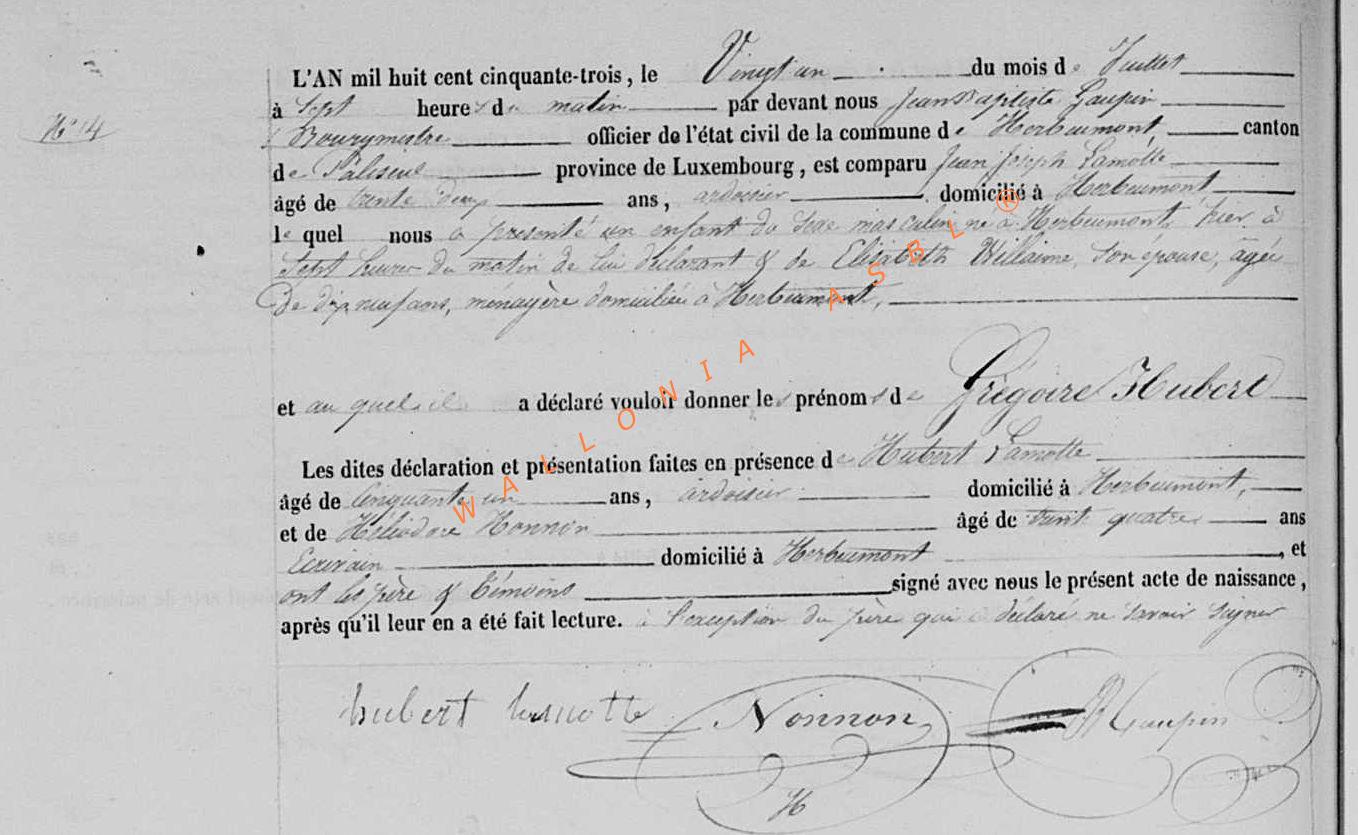 L'AN mil huit cent cinquante-trois, le Vingt un du mois de Juillet
à sept heures du matin par devant nous Jean Baptiste Gaupin
N° 14
Bourgmestre officier de l'état civil de la commune de Herbeumont, canton
de Paliseul province de Luxembourg, est comparu Jean Joseph Lamotte
âgé de trente deux ans, ardoisier domicilié à Herbeumont
le quel nous a présenté un enfant du sexe masculin né à Herbeumont, hier à
sept heures du matin de lui déclarant & de Elisabeth Willaime, son épouse, agée
de dix neuf ans, ménagère domiciliée à Herbeumont,
et au quel il a déclaré vouloir donner les prénoms de Grégoire Hubert
Les dites déclaration et présentation faites en présence de Hubert Lamotte
âgé de Cinquante un ans, ardoisier domicilié à Herbeumont,
et de Héliodore Nonnon âgé de trente quatre ans
Ecrivain domicilié à Herbeumont, et
ont les père & témoins signé avec nous le présent acte de naissance,
après qu'il leur en a été fait lecture. à l'exception du père qui a déclaré ne savoir signer
hubert lamotte Nonnon Gaupin
H
WALLONIA ASBL ®